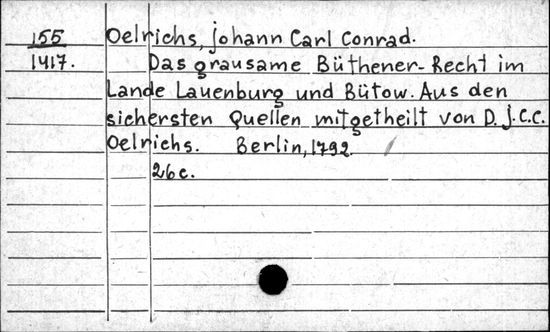 155 Oelrichs, Johann Carl Conrad.
1417. Das grausame Büthener-Recht im
Lande Lauenburg und Bütow. Aus den
sichersten Quellen mitgetheilt von D. J.C.C.
Oelrichs. Berlin, 1792.
26c.